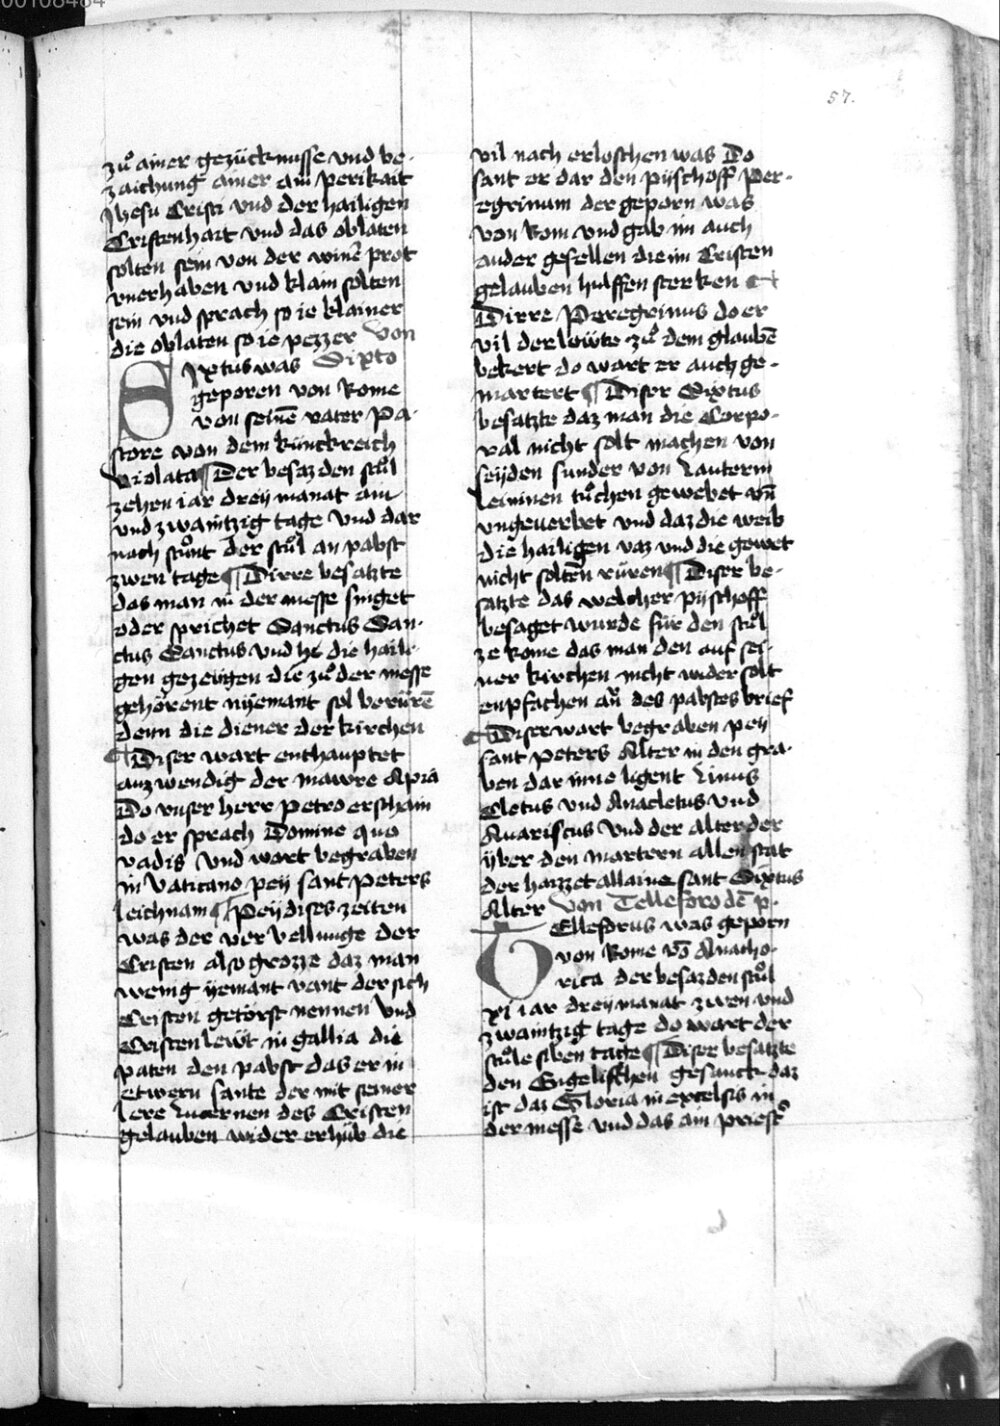 00108484
57.
zuͦ ainer gezücknusse vnd be-
zaichung ainer ain perikait
Jhesu Cristi vnd der hailigen
Cristenhait vnd das oblaten
solten sein von der winē prot
vnerhaben vnd klain solten
sein vnd sprach so ie klainer
die oblaten so ie pezzer Von
Sixtus was Sixto
geporen von Rome
von seinē vater Pa-
store von dem künckreich
violata ¶ Der besaz den stuͦl
zehen iar dreÿ manat ain
vnd zwaintzig tage vnd dar
nach stuͦnt der stuͦl an pabst
zwen tage ¶ Dirre besatzte
das man in der messe singet
oder sprichet Sanctus San-
ctus Sanctus vnd hc die haili-
gen gezeügen die zuͦ der messe
gehörent nÿemant sol berürē
denn die diener der kirchen
¶ Diser wart enthauptet
auzwendig der mawre Apia
Do vnser herr Petro erschain
do er sprach Domine quo
vadis vnd wart begraben
in Vaticano peÿ sant Peters
leichnam ¶ Peÿ dises zeiten
was der ver vellunge der
Cristen also grozze daz man
wenig ÿemant vant der sich
Cristen getörst nennen vnd
Cristen lewt in gallia die
paten den pabst das er in
etwern sante der mit seiner
lere lucernen des Cristen
gelauben wider erhüb die
vil nach erloschen was Do
sant er dar den pÿschoff Per-
egrinum der geporn was
von Rom vnd gab im auch
ander gesellen die im Cristen
gelauben hulffen sterken ¶
Dirre Peregrinus do er
vil der lowte zuͦ dem glaubē
bekert do wart er auch ge-
martert ¶ Diser Sixtus
besatzte daz man die Corpo-
ral nicht solt machen von
seÿden sunder von lauterm
leininen tuͦchen gewebet vn̄
vngeuerbet vnd daz die weib
die hailigen vaz vnd die gewet
nicht soltēn rüren ¶ Diser be-
satzte das welcher pÿschoff
besaget wurde für den stuͦl
ze Rome das man den auf sei-
ner kirchen nicht wider solt
enpfachen an̄ des pabstes brief
¶ Diser wart begraben peÿ
sant Peters Alter in den gra-
ben dar inne ligent Linus
Cletus vnd Anacletus vnd
Auaristus vnd der alter der
ÿber den martern allen stat
der haizzet allaine sant Sixtus
Alter Von Tellesforo dē p.
Tellesforus was geporn
von Rome vō Anacho-
rica der besaz den stuͦl
xi iar dreÿ manat zwen vnd
zwaintzig tage do wart der
stuͦle siben tage ¶ Diser besatzte
den Engelischen gesanck daz
ist daz Gloria in excelsis in
der messe vnd das ain priest͛